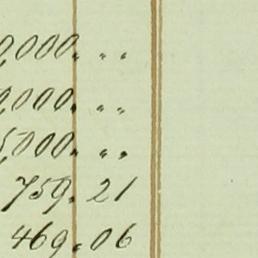 0,000. „ „
0,000. „ „
5,000. „ „
759. 21
469.06